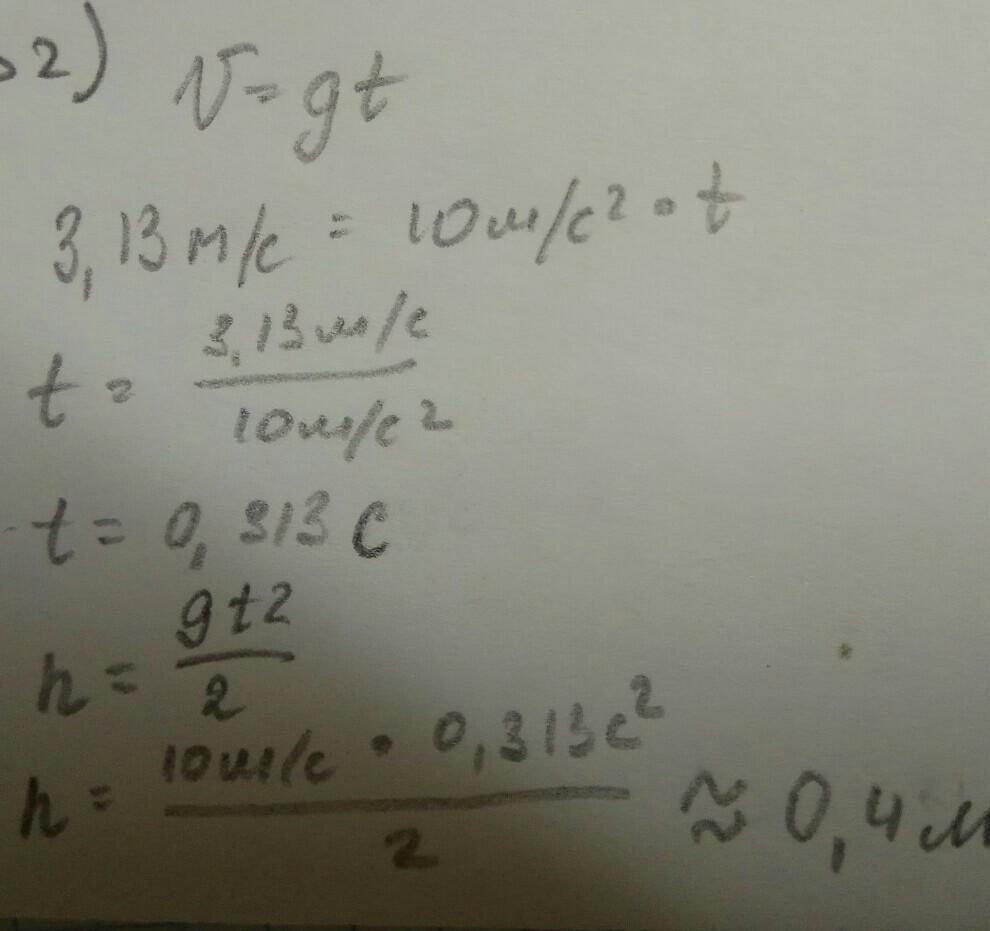 2) V = gt
3,13 м/с = 10 м/с² • t
t = 3,13 м/с / 10 м/с²
t = 0,313 с
h = gt2 / 2
h = 10 м/с • 0,313 с² / 2 ≈ 0,4 м